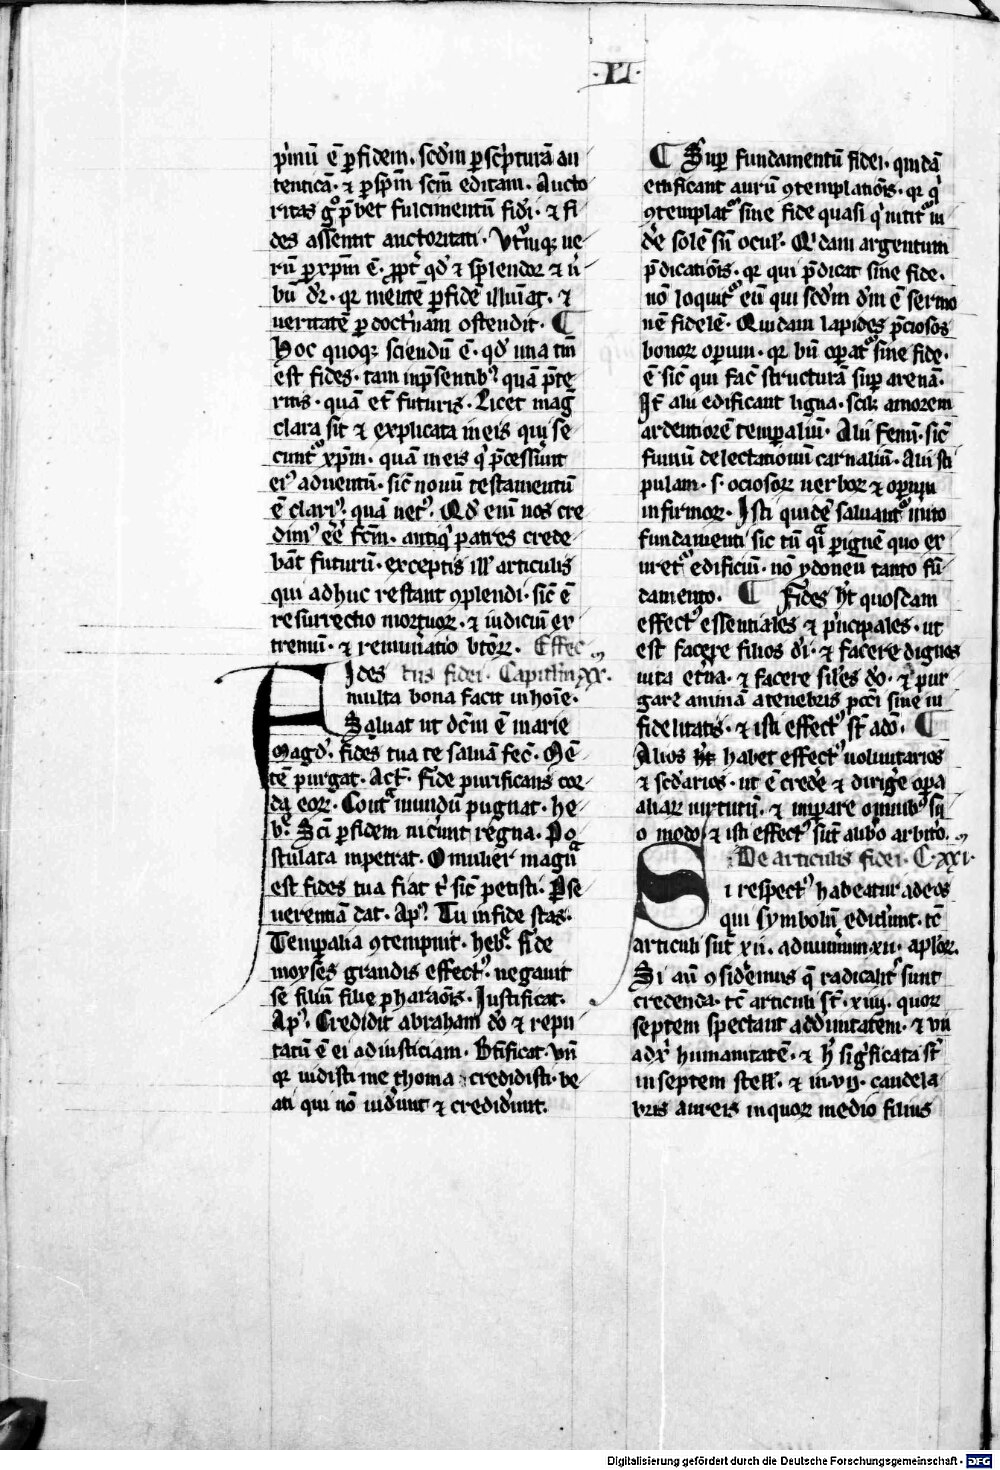 ·VI·
p'mū ē ꝑ fidem. scd'm ꝑ sc'pturā au
tenticā. ⁊ ꝑ sp̄m scm̄ editam. Aucto
ritas gͦ p̄bet fulcimentū fid'i. ⁊ fi
des assentit auctoritati. Vt'mqꝫ ue
rū ꝑ xp̄m ē. ꝓpt' qd' ⁊ splendor ⁊ u'
bū d'r. qꝛ mentē ꝑ fidē illuīat. ⁊
ueritatē ꝑ doct'nam ostendit. ¶
Hoc quoqꝫ sciendū ē. qd' una tm̄
est fides. tam in p̄sentibꝰ quā p̄te
ritis. quā et̄ futuris. Licet maḡ
clara sit ⁊ explicata in eis qui se
cunt' xp̄m. quā in eis q' p̄cess'unt
eiꝰ aduentū. sic̄ nouū testamentū
ē clariꝰ quā uetꝰ. Qd' enī nos cre
dimꝰ eē fc̄m. antiq' patres crede
bāt futurū. exceptis ill' articulis
qui adhuc restant ꝯplendi. sic̄ ē
resurrectio mortuoꝝ. ⁊ iudiciū ex
tremū. ⁊ remun'atio btōꝝ. Effec
Ides tus fidei. Capitl'm XX.
multa bona facit in hoīe.
Saluat ut dc̄m ē marie
magd'. fides tua te saluā fec̄. Mē
tē purgat. Act̄. fide purificans cor
da eoꝝ. Cont̄ mundū pugnat. he
b'. Sc̄i ꝑ fidem uic'unt regna. Po
stulata inpetrat. O mulier magͣ
est fides tua fiat t' sic̄ petisti. Pse
uerentiā dat. Apꝰ. Tu in fide stas.
Temꝑalia ꝯtempnit. heb'. fide
moyses grandis effectꝰ. negauit
se filiū filie pharaōis. Iustificat.
Apꝰ. Credidit abraham d'o ⁊ repu
tatū ē ei ad iusticiam. Bt̄ificat. un̄
qꝛ uidisti me thoma credidisti. be
ati qui nō uid'unt ⁊ credid'unt.
¶ Suꝑ fundamentū fidei. quidā
edificant aurū ꝯtemplatiōis. qꝛ q'
ꝯtemplat' sine fide quasi q' nitit' ui
d'e solē sn̄ ocul'. Q'dam argentum
p̄dicatiōis. qꝛ qui p̄dicat sine fide.
nō loquit' eū qui scd'm d'm ē sermo
nē fidelē. Quidam lapides p̄ciosos
bonoꝝ oꝑum. qꝛ bn̄ oꝑat' sine fide.
ē sic̄ qui fac̄ structurā suꝑ arenā.
It̄ alii edificant ligna. scilꝫ amorem
ardentiorē temꝑaliū. Alii fenū. sic̄
fumū delectationū carnaliū. Alii sti
pulam. s. ociosoꝝ uerboꝝ ⁊ oꝑum
infirmoꝝ. Isti quidē saluant' m'ito
fundamenti sic tn̄ ꝙ ꝑ ignē quo ex
uret' edificiū. nō ydoneū tanto fū
damento. ¶ Fides h't quosdam
effectꝰ essentiales ⁊ p'ncipales. ut
est facere filios d'i. ⁊ facere dignos
uita et'na. ⁊ facere sil'es d'o. ⁊ pur
gare animā a tenebris pcc̄i siue in
fidelitatis. ⁊ isti effectꝰ st̄ a d'o. ¶
Alios habet effectꝰ uoluntarios
⁊ scd'arios. ut ē cred'e ⁊ dirig'e oꝑa
aliaꝝ uirtutū. ⁊ imꝑare omnibꝰ su
o modo. ⁊ isti effectꝰ sūt a lib'o arb'io.
De articulis fidei. C. XXI.
Si respectꝰ habeatur ad eos
qui symbolū edid'unt. tc̄
articuli sūt xii. ad nūmum xii. apl'oꝝ.
Si aū ꝯsid'emus q̄ radical't' sunt
credenda. tc̄ articuli st̄. xiiii. quoꝝ
septem spectant ad d'uinitatem. ⁊ vii
ad x' humanitatē. ⁊ h' sig'ficata st̄
in septem stell'. ⁊ in. vii. candela
bris aureis in quoꝝ medio filius
Digitalisierung gefördert durch die Deutsche Forschungsgemeinschaft - DFG